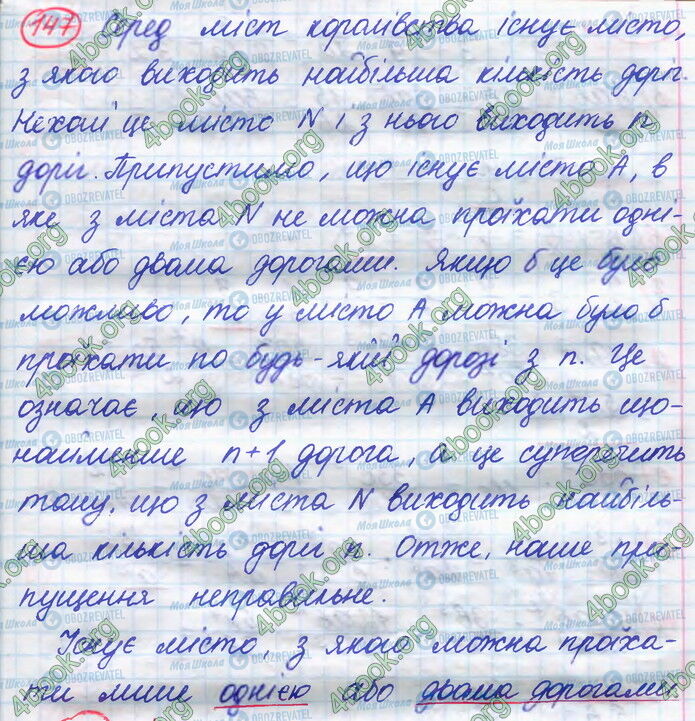 147 Серед міст королівства існує місто,
з якого виходить найбільша кількість доріг.
Нехай це місто N і з нього виходить n
доріг. Припустимо, що існує місто А, в
яке з міста N не можна проїхати одні-
єю або двома дорогами. Якщо б це було
можливо, то у місто А можна було б
проїхати по будь-якій дорозі з n. Це
означає, що з міста А виходить що-
найменше n+1 дорога, а це суперечить
тому, що з міста N виходить найбіль-
ша кількість доріг n. Отже, наше при-
пущення неправильне.
Існує місто, з якого можна проїха-
ти лише однією або двома дорогами